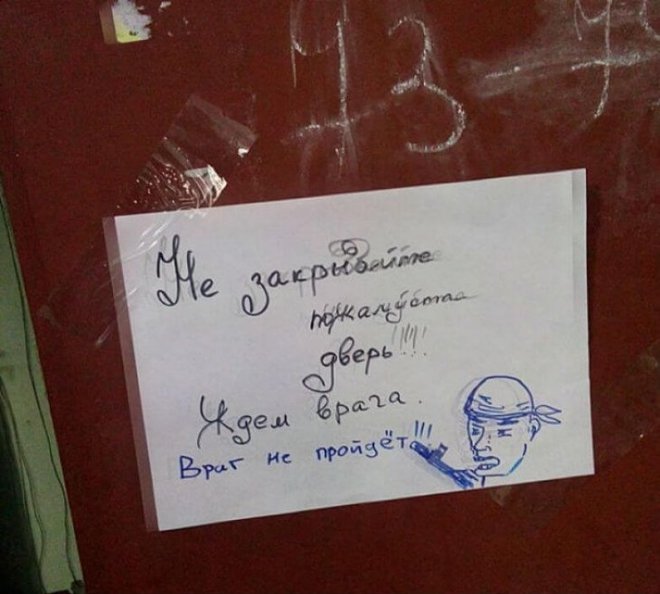 43
Не закрывайте
пожалуйста
дверь!!!!!
Ждем врага.
Враг не пройдёт!!!